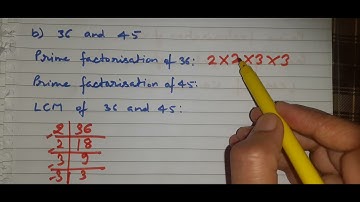 b) 36 and 45
Prime factorisation of 36: 2×2×3×3
Prime factorisation of 45:
LCM of 36 and 45:
2 | 36
2 | 18
3 | 9
3 | 3